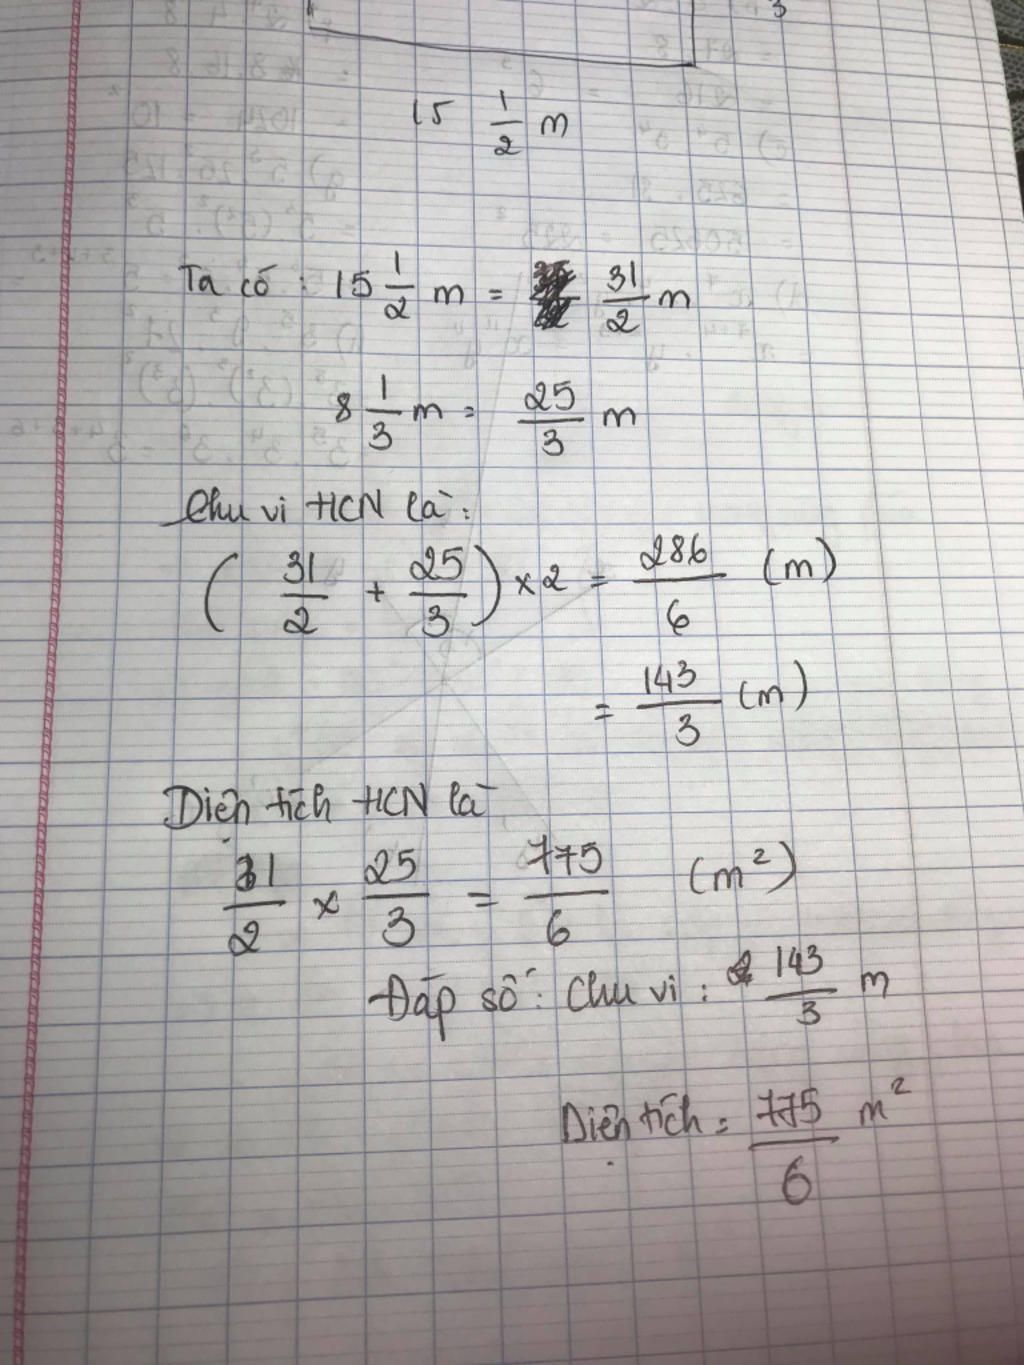 3
15 1/2 m
Ta có : 15 1/2 m = 31/2 m
8 1/3 m = 25/3 m
Chu vi HCN là :
( 31/2 + 25/3 ) × 2 = 286/6 (m)
= 143/3 (m)
Diện tích HCN là
31/2 × 25/3 = 775/6 (m²)
Đáp số : Chu vi : 143/3 m
Diện tích = 775/6 m²